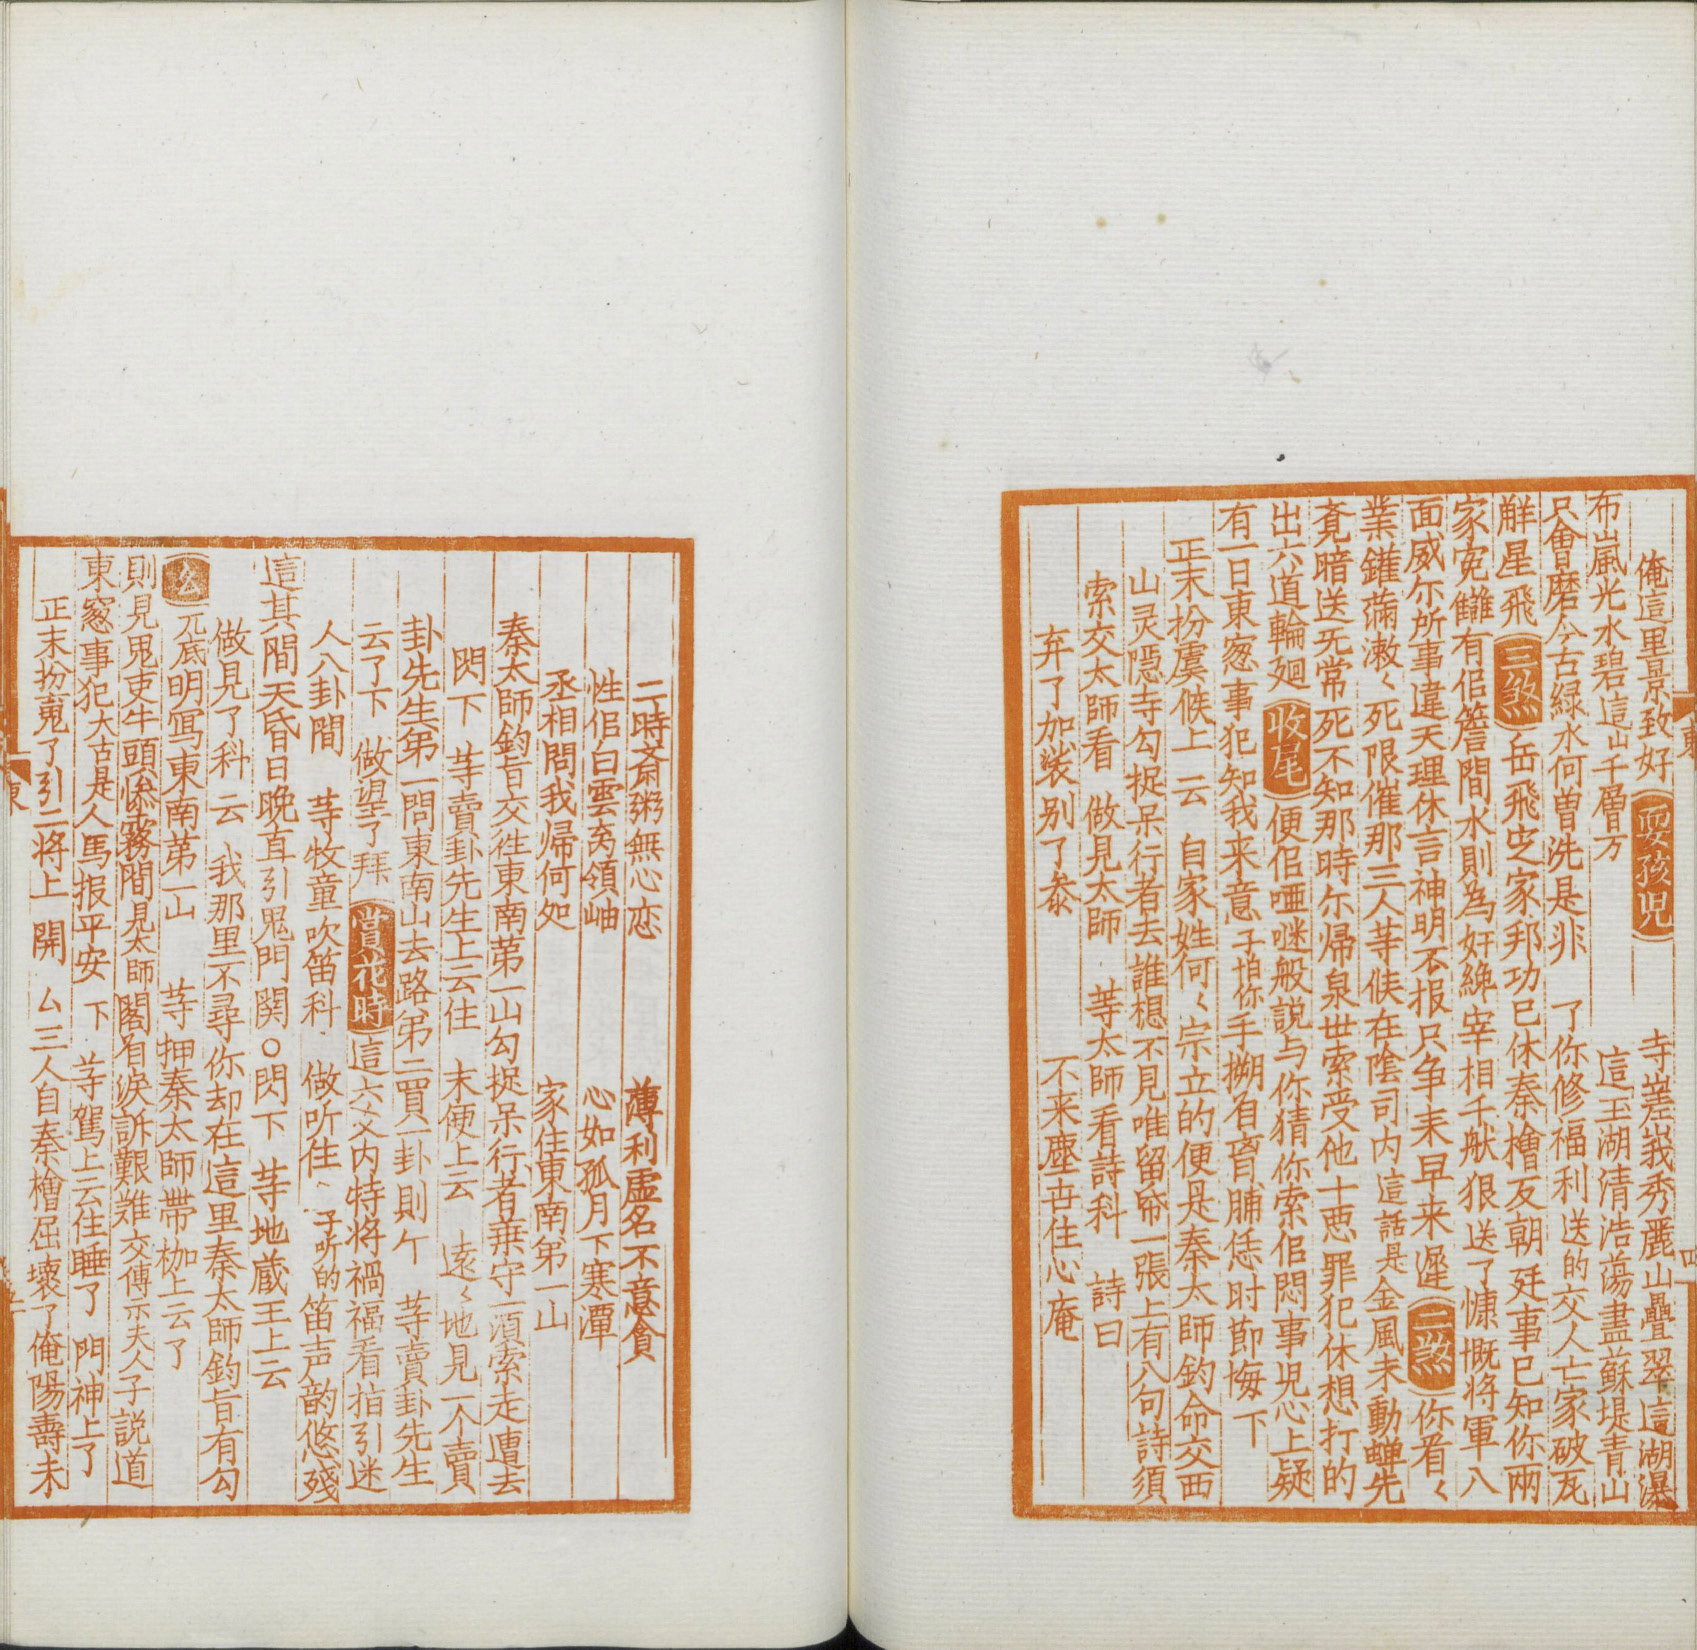 俺這里景致好 耍孩児 寺嵯峩秀麗山疊翠這湖瀑
布嵐光水碧這山千層方 這玉湖清浩蕩盡蘇堤青山
只會磨今古緑水何曽洗是非 了你修福利送的交人亡家破瓦
觧星飛 三煞 岳飛定家邦功已休秦檜反朝廷事已知你兩
家寃讎有佀簷間水則為奸䌫宰相千般狠送了慷慨将軍八
面威尓所事違天理休言神明不报只争来早来遲 二煞 你看く
業鑵滿漱く死限催那三人䓁候在陰司内 這話是金風未動蟬先
竟暗送无常死不知那時尓帰泉世索受他十𢙣罪犯休想打的
出六道輪廻 收尾 便佀啞咪般説与你猜你索佀悶事児心上疑
有一日東窓事犯知我来意子怕你手搠 恁时節悔 下
正末扮虞候上 云 自家姓何く宗立的便是秦太師鈞命交西
山灵隠寺勾捉呆行者去誰想不見唯留㠶一張上有八句詩須
索交太師看 做見太師 䓁太師看詩科 詩曰
弃了加裟别了叅 不来塵世住心庵
二時斎粥無心恋 薄利虚名不意貪
性佀白雲 領岫 心如孤月下寒潭
丞相問我帰何处 家住東南第一山
秦太師鈞旨交徃東南第一山勾捉呆行者葉守一湏索走遭去
閃下 䓁賣卦先生上云住 末便上云 遠く地見一人賣
卦先生第一問東南山去路第二買一卦則个 䓁賣卦先生
云了下 做望了拜 賞花時 這六爻内特将禍福看指引迷
人八卦間 䓁牧童吹笛科 做听住、子听的笛声韵悠殘
這其間天昏日晚直引鬼門関○閃下 䓁地蔵王上云
做見了科 云 我那里不尋你却在這里秦太師鈞旨有勾
么 兀底明冩東南第一山 䓁押秦太師帶枷上云了
則見鬼吏牛頭慘霧間見太師閣有淚訴艱难交傳示夫人子説道
東窓事犯大古是人馬报平安 下 䓁駕上云住睡了 門神上了
正末扮䰟了引二将上 開 厶三人自秦檜屈壊了俺陽壽未